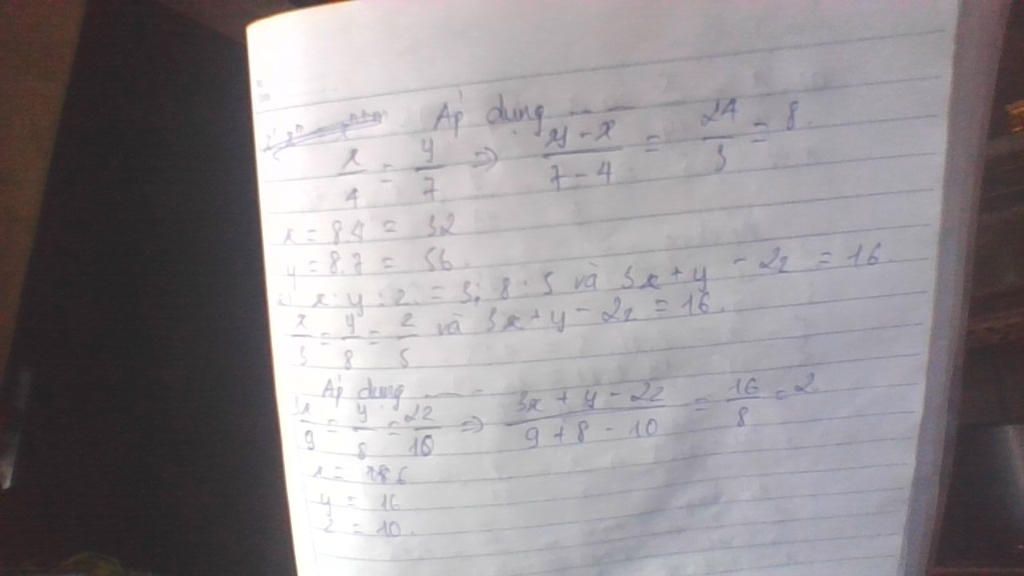 Áp dụng ......
x/4 = y/7 => y-x/7-4 = 24/3 = 8.
x = 8.4 = 32
y = 8.7 = 56.
x:y:z = 3:8:5 và 3x+y-2z = 16.
x/3 = y/8 = z/5 và 3x+y-2z = 16.
Áp dụng ......
3x/9 = y/8 = 2z/10 => 3x+y-2z/9+8-10 = 16/8 = 2
x = 6
y = 16
z = 10.